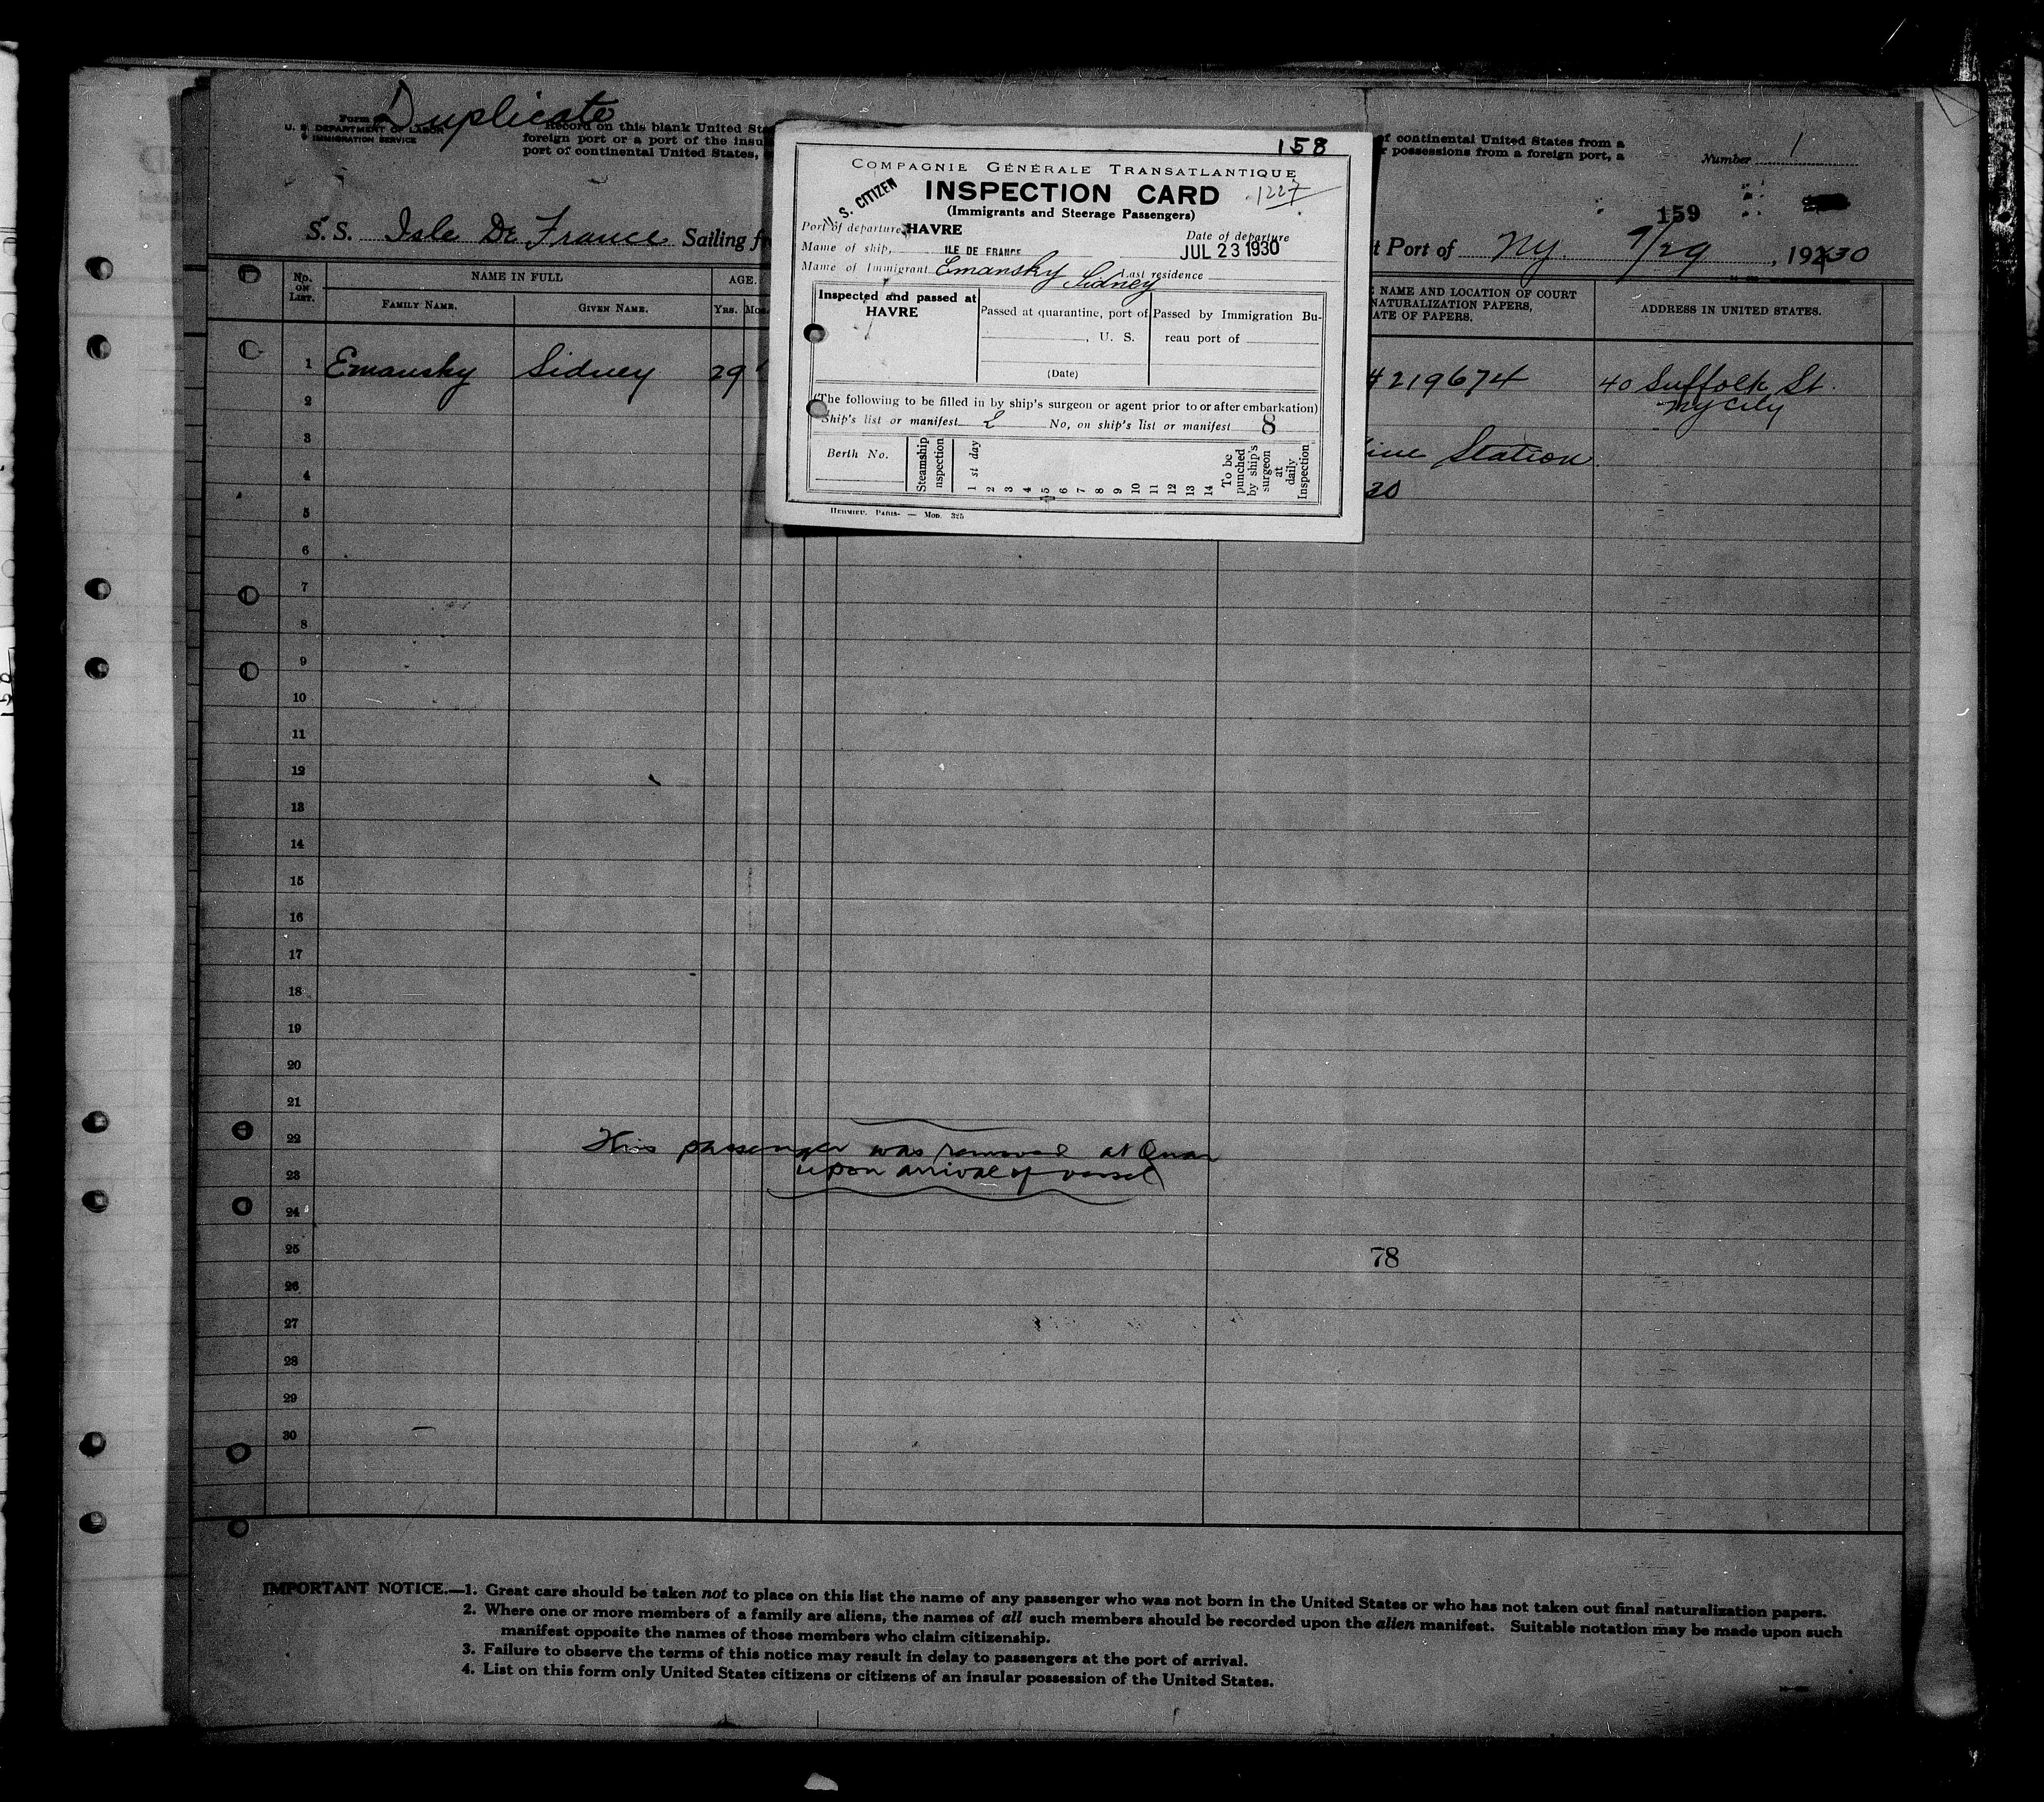 Duplicate
Form
U. S. DEPARTMENT OF LABOR
IMMIGRATION SERVICE
Record on this blank United Sta
foreign port or a port of the insul
port of continental United States,
of continental United States from a
r possessions from a foreign port, a
Number 1
159
S. S. Isle De France Sailing fr
t Port of Ny. 7/29, 19230
No. ON LIST.
NAME IN FULL
FAMILY NAME.
GIVEN NAME.
AGE.
Yrs. Mos.
NAME AND LOCATION OF COURT
NATURALIZATION PAPERS,
ATE OF PAPERS.
ADDRESS IN UNITED STATES.
158
COMPAGNIE GÉNÉRALE TRANSATLANTIQUE
U. S. CITIZEN
INSPECTION CARD
1227
(Immigrants and Steerage Passengers)
Port of departure, HAVRE
Date of departure
Mame of ship, ILE DE FRANCE
JUL 23 1930
Mame of Immigrant Emansky Sidney Last residence
Inspected and passed at
HAVRE
Passed at quarantine, port of
, U. S.
(Date)
Passed by Immigration Bu-
reau port of
(The following to be filled in by ship's surgeon or agent prior to or after embarkation)
Ship's list or manifest 2 No, on ship's list or manifest 8
Berth No.
Steamship
nspection
1 st day
2 3 4 5 6 7 8 9 10 11 12 13 14
To be
punched
by ship's
surgeon
at
daily
Inspection
HERMIEU. PARIS- — Mod. 325
1 Emansky Sidney 29
219674
40 Suffolk St.
2
ny City
3
ine Station
4
30
5
6
7
8
9
10
11
12
13
14
15
16
17
18
19
20
21
22
This passenger was removed at Quar
23
upon arrival of vessel
24
25
78
26
27
28
29
30
IMPORTANT NOTICE.—1. Great care should be taken not to place on this list the name of any passenger who was not born in the United States or who has not taken out final naturalization papers.
2. Where one or more members of a family are aliens, the names of all such members should be recorded upon the alien manifest. Suitable notation may be made upon such
manifest opposite the names of those members who claim citizenship.
3. Failure to observe the terms of this notice may result in delay to passengers at the port of arrival.
4. List on this form only United States citizens or citizens of an insular possession of the United States.